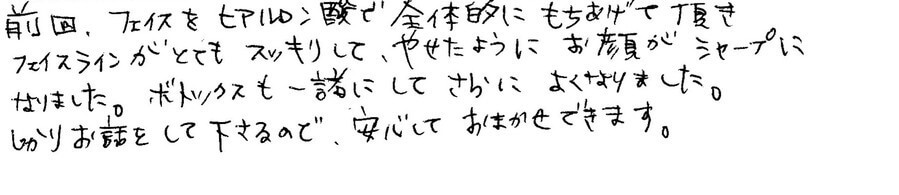 前回、フェイスをヒアルロン酸で全体的にもちあげて頂き
フェイスラインがとてもスッキリして、やせたようにお顔がシャープに
なりました。ボトックスも一諸にしてさらによくなりました。
しっかりお話をして下さるので、安心しておまかせできます。